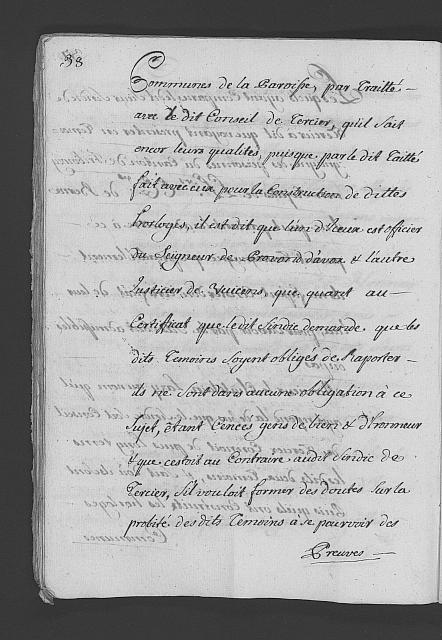 38
Communes de la Paroisse, par Traitté
avec le dit Conseil de Tercier, qu'il sait
encor leurs qualités, puisque par le dit Traitté
fait avec eux pour la Construction de dittes
horloges, il est dit que l'un d'Iceux est officier
du Seigneur de d'avaz & l'autre
Justicier de que quant au
Certifficat que ledit Sindic demande que les
dits Temoins soyent obligés de Raporter
ils ne sont dans aucune obligation à ce
Sujet, étant Cencés gens de bien & d'honneur
& que c'estoit au Contraire audit Sindic de
Tercier, s'il vouloit former des doutes sur la
probité des dits Temoins a se pourvoir des
Preuves